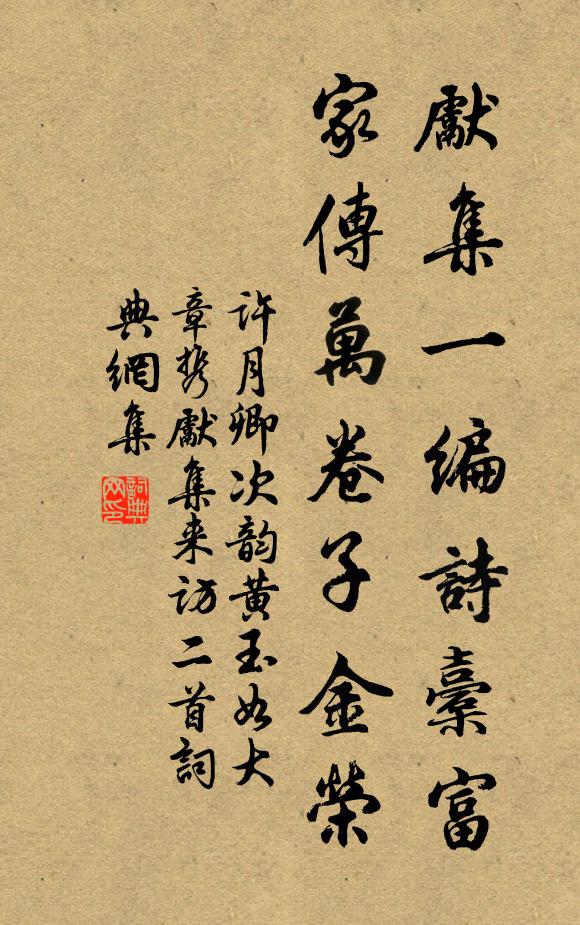 獻集一編詩橐富
家傳萬卷子金榮
許月卿次韵黃玉如大
章携獻集来访二首詞
典網集
詞典网印